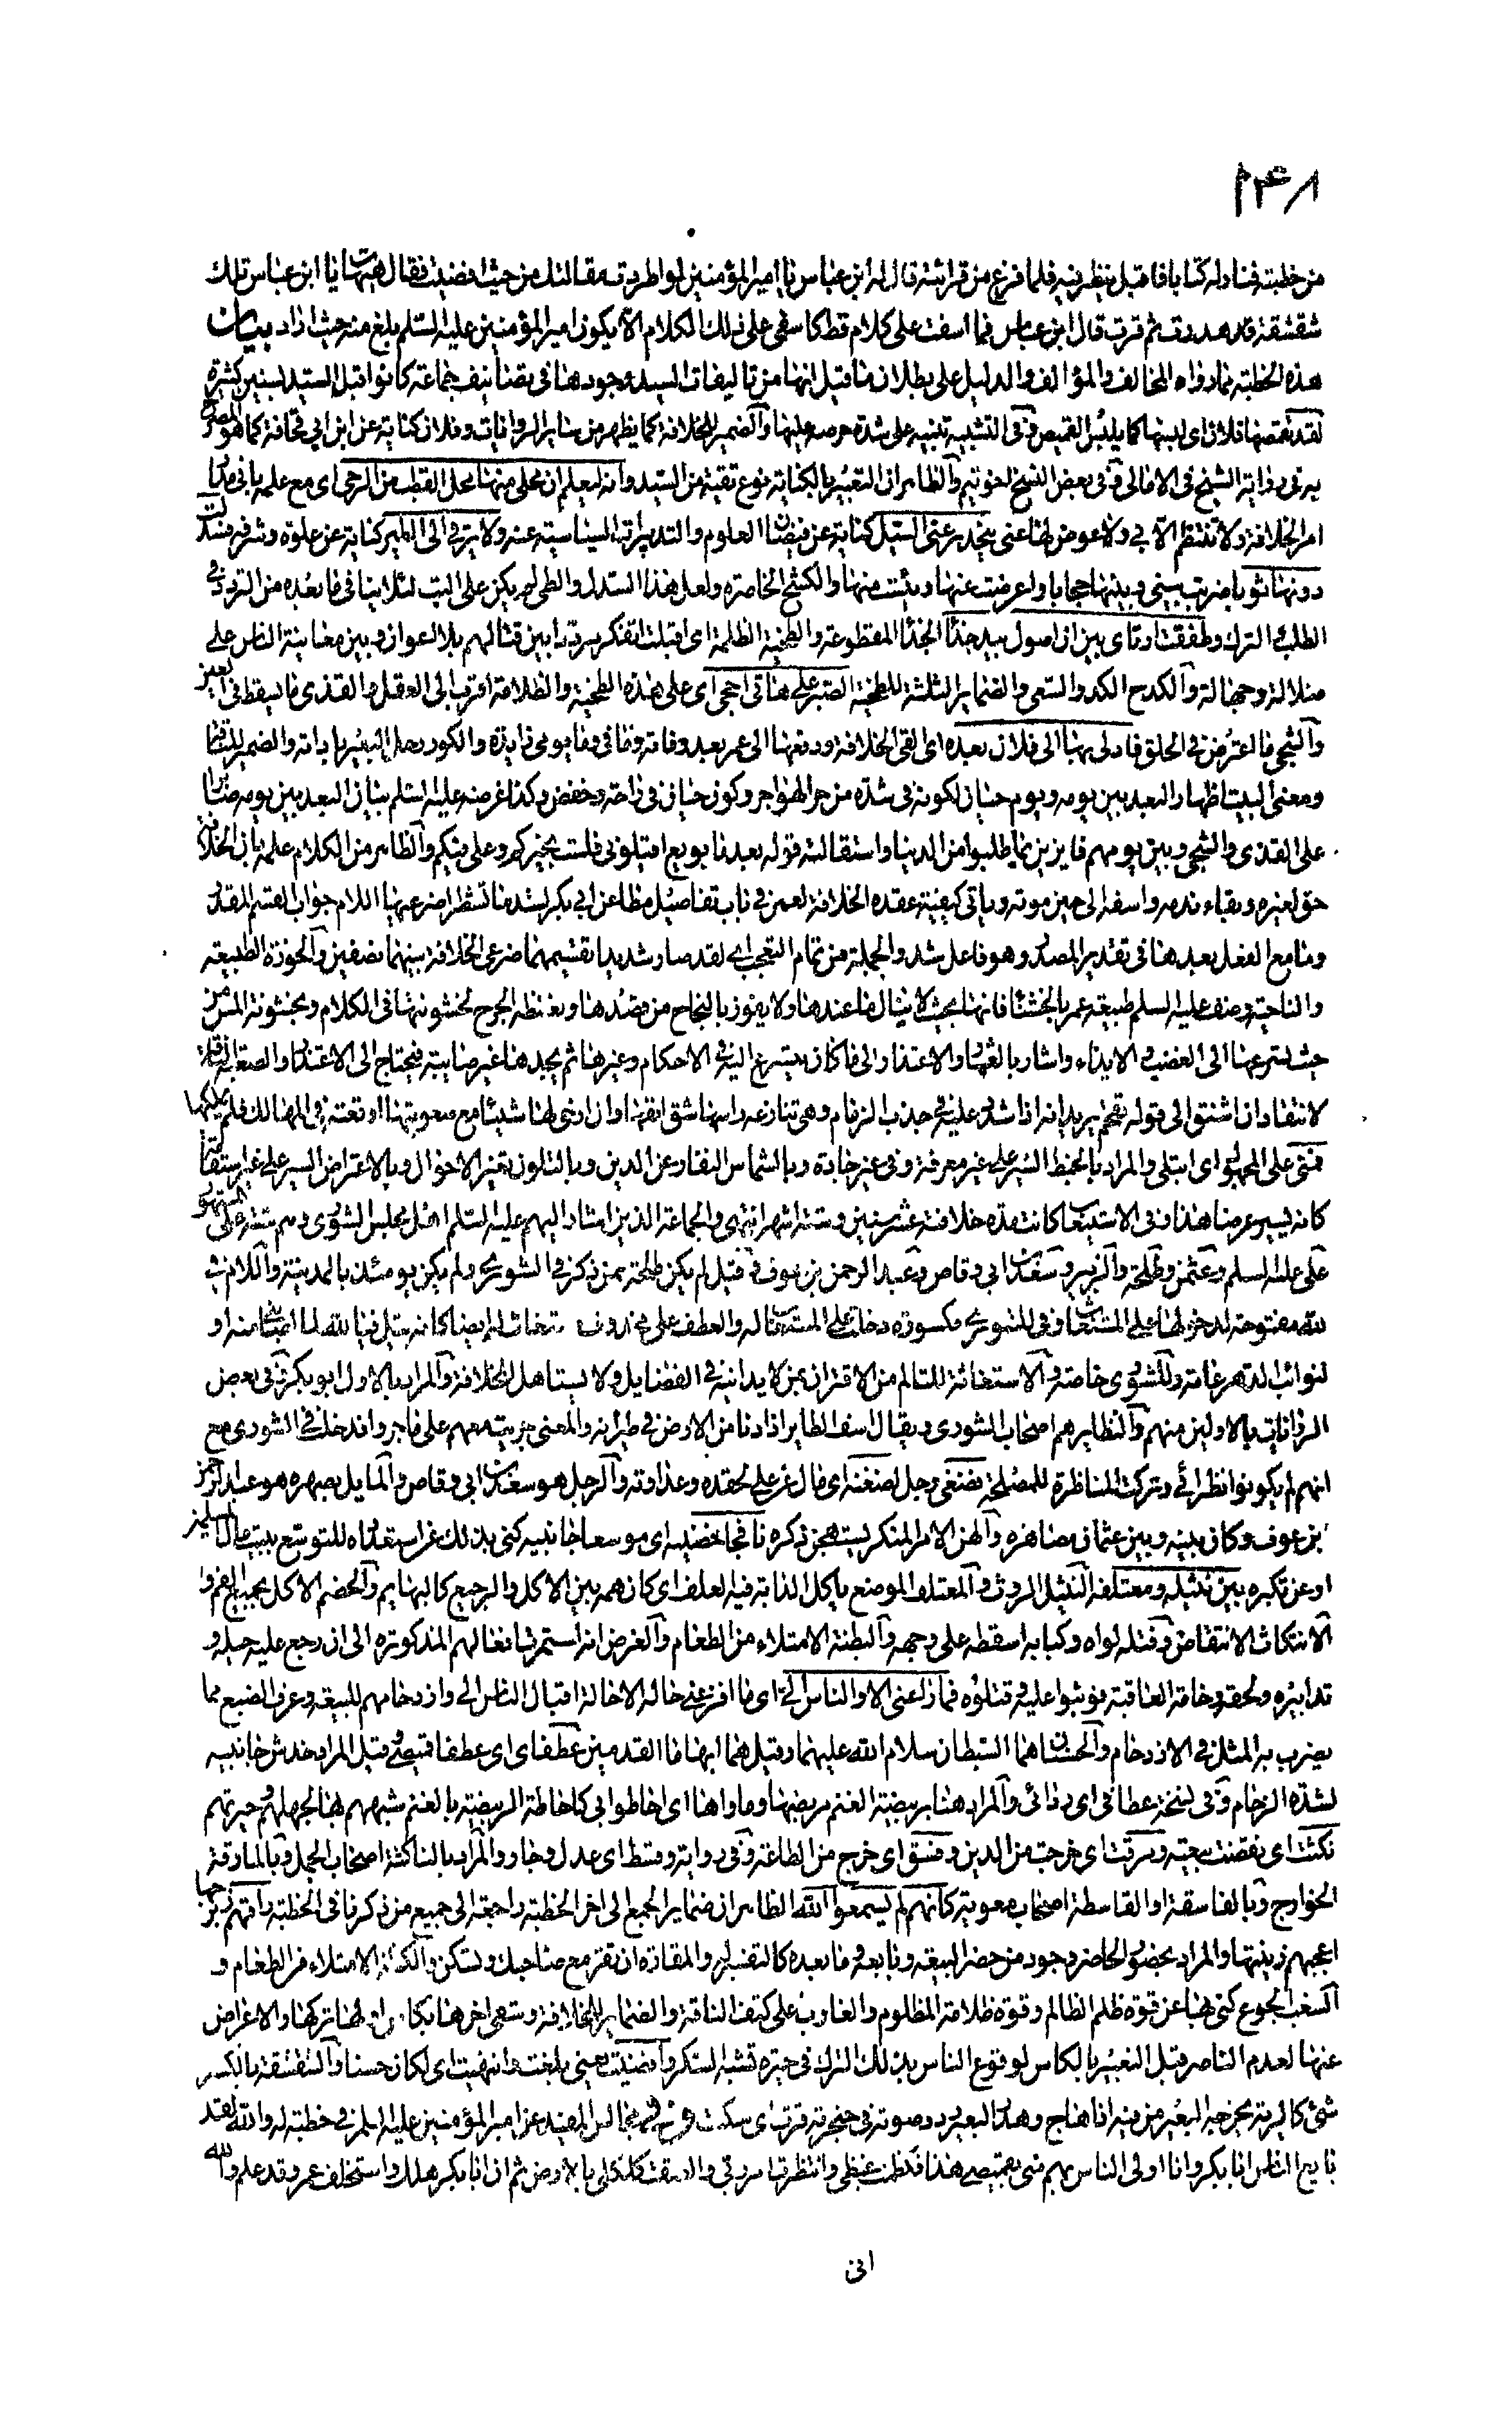 ٢٤٨
من خطبته فناوله كتابا فاقبل ينظر فيه فلما فرغ من قرائته قال له ابن عباس يا امير المؤمنين لو اطردت مقالتك من حيث افضيت فقال هيهات يا ابن عباس تلك
شقشقة هدرت ثم قرت قال ابن عباس فما اسفت على كلام قط كاسفى على ذلك الكلام الا يكون امير المؤمنين عليه السلم بلغ منه حيث اراد بيان
هذه الخطبة مما رواه المخالف والمؤالف والدليل على بطلان ما قيل انها من تاليفات السيد وجودها فى تصانيف جماعة كانوا قبل السيد بسنين كثيرة
لقد تقمصها فلان اى لبسها كما يلبس القميص وفى التشبيه تنبيه على شدة حرصه عليها والضمير للخلافة كما يظهر من ساير الروايات وفلان كناية عن ابن ابي قحافة كما هو المصرح
به فى رواية الشيخ فى الامالى وفى بعض النسخ اخو تيم والظاهر ان التعبير بالكناية نوع تقية من السيد وانه ليعلم ان محلى منها محل القطب من الرحى اى مع علمه بانى مدار
امر الخلافة ولا تنتظم الا بي ولا عوض لها عنى ينحدر عنى السيل كناية عن فيضان العلوم والتدبيرات السياسية عنه ولا يرقى الى الطير كناية عن علوه وشرفه فسدلت
دونها ثوبا ضربت بينى وبينها حجابا واعرضت عنها ويئست منها والكشح الخاصرة ولعل هذا السدل والطى لم يكن على البت لئلا ينافى ما بعده من الترديد فى
الطلب والترك وطفقت ارتاى بين ان اصول بيد جذاء الجذاء المقطوعة والطخية الظلمة اى اقبلت اتفكر مرددا بين قتالهم بلا اعوان وبين معاينة الناس على
ضلالة وجهالة والكدح الكد والسعى والضماير الثلثة للطخية الصبر على هاتى احجى اى على هذه الطخية والظلامة اقرب الى العقل والقذى ما يسقط فى العين
والشجى ما اعترض فى الحلق فادلى بها الى فلان بعده اى القى الخلافة ودفعها الى عمر بعد وفاته وما فى وما يومى زايدة والكور رحل البعير باداته والضمير للناقة
ومعنى البيت اظهار البعد بين يومه ويوم حيان لكونه فى شدة من حر الهواجر وكون حيان فى راحة وخفض وكذا غرضه عليه السلم بيان البعد بين يومه صابرا
على القذى والشجى وبين يومهم فايزين بما طلبوا من الدنيا واستقالته قوله بعد ما بويع اقيلونى فلست بخيركم وعلى فيكم والظاهر من الكلام علمه بان الخلافة
حق لغيره وبقاء ندمه واسفه الى حين موته وياتى كيفية عقده الخلافة لعمر فى باب تفاصيل مطاعن ابي بكر لشد ما تشطرا ضرعيها اللام جواب القسم المقدر
وما مع الفعل بعدها فى تقدير المصدر وهو فاعل شد والجملة من تمام التعجب اى لقد صار شديدا تقسيمهما ضرعى الخلافة بينهما نصفين والحوزة الطبيعة
والناحية وصف عليه السلم طبيعة عمر بالخشناء فانها بحيث لا ينال ما عندها ولا يفوز بالنجاح من قصدها وبغلظة الجرح لخشونتها فى الكلام وبخشونة المس من
حيث تسرعها الى الغضب والايذاء واشار بالعثار والاعتذار الى ما كان يتسرع اليه فى الاحكام وغيرها ثم يجدها غير صايبة فيحتاج الى الاعتذار والصعبة
لا تنقاد ان اشنق الى قوله تقحم يريد انه اذا شدد عليه فى جذب الزمام وهى تنازعه راسها شق انفها وان ارخى لها شيئا مع صعوبتها اوقعته فى المهالك فلم يملكها
فمنى على المجهول اى ابتلى والمراد بالخبط السير على غير معرفة وفى غير جادة وبالشماس النفار عن الدين وبالتلون تغير الاحوال وبالاعتراض السير على غير استقامة
كانه يسير عرضا هذا وفى الاستيعاب كانت مدة خلافته عشر سنين وستة اشهر انتهى والجماعة الذين اشار اليهم عليه السلم اهل مجلس الشورى وهم ستة على المشهور
على عليه السلم وعثمن وطلحة والزبير وسعد بن ابي وقاص وعبد الرحمن بن عوف وقيل لم يكن طلحة ممن ذكر فى الشورى ولم يكن يومئذ بالمدينة واللام فى
لله مفتوحة لدخولها على المستغاث وفى للشورى مكسورة دخلت على المستغاث له والعطف على محذوف مستغاث له ايضا كانه قيل فيا لله لما اصبنا منه او
لنوائب الدهر عامة وللشورى خاصة والاستغاثة للتالم من الاقتران بمن لا يدانيه فى الفضايل ولا يستاهل للخلافة والمراد بالاول ابو بكر وفى بعض
الروايات بالاولين منهم والنظاير هم اصحاب الشورى ويقال اسف الطاير اذا دنا من الارض فى طيرانه والمعنى جريت معهم على ما جروا ودخلت فى الشورى مع
انهم لم يكونوا نظرائى وتركت المناظرة للمصلحة فصغى رجل لضغنه اى مال عن على لحقده وعداوته والرجل هو سعد بن ابي وقاص والمايل بصهره هو عبد الرحمن
بن عوف وكان بينه وبين عثمان مصاهرة والهن الامر المنكر يستهجن ذكره نافجا حضنيه اى موسعا جانبيه كنى بذلك عن استعداده للتوسع ببيت مال المسلمين
او عن تكبره بين نثيله ومعتلفه النثيل الروث والمعتلف الموضع ياكل الدابة فيه العلف اى كان همه بين الاكل والرجيع كالبهايم والخضم الاكل بجميع الفم و
الانتكاث الانتقاض وفتله لواه وكبا به اسقطه على وجهه والبطنة الامتلاء من الطعام والغرض انه استمرت افعالهم المذكورة الى ان رجع عليه حيله و
تدابيره ولحقه وخامة العاقبة فوثبوا عليه وقتلوه فما راعنى الا والناس الى اى ما افزعنى حاله الا حالة اقبال الناس الى وازدحامهم للبيعة وعرف الضبع مما
يضرب به المثل فى الازدحام والحسنان هما السبطان سلام الله عليهما وقيل هما ابهاما القدمين عطفاى اى عطفا قميصى وقيل المراد خدش جانبيه
لشدة الزحام وفى نسخة عطافى اى ردائى والمراد هنا بربيضة الغنم مربضها وماواها اى احاطوا بى كاحاطة الربيضة بالغنم شبههم بها لجهلهم وحيرتهم
نكثت اى نقضت بيعته ومرقت اى خرجت من الدين وفسق اى خرج من الطاعة وفى رواية وقسط اى عدل وجار والمراد بالناكثة اصحاب الجمل وبالمارقة
الخوارج وبالفاسقة او القاسطة اصحاب معوية كانهم لم يسمعوا الله الظاهر ان ضماير الجمع الى اخر الخطبة راجعة الى جميع من ذكرنا فى الخطبة وراقهم زبرجها
اعجبهم زينتها والمراد بحضور الحاضر وجود من حضر البيعة وتابعه وما بعده كالتفسير له والمقارة ان تقر مع صاحبك وتسكن والكظة الامتلاء من الطعام و
السغب الجوع كنى بهما عن قوة ظلم الظالم وقوة ظلامة المظلوم والغارب على كتف الناقة والضماير للخلافة وسقى اخرها بكاس اولها تركها والاعراض
عنها لعدم الناصر وقيل التعبير بالكاس لوقوع الناس بذلك الترك فى حيرة تشبه السكر وافضيت يعنى بلغت وانتهيت اى لكان حسنا والشقشقة بالكسر
شئ كالرية يخرجه البعير من فيه اذا هاج وهدر البعير ردد صوته فى حنجرته قرت اى سكنت وفى مجالس المفيد عن امير المؤمنين عليه السلم فى خطبة له والله لقد
بايع الناس ابا بكر وانا اولى الناس بهم منى بقميصى هذا فكظمت غيظى وانتظرت امر ربى والصقت كلكلى بالارض ثم ان ابا بكر هلك واستخلف عمر وقد علم والله
انى